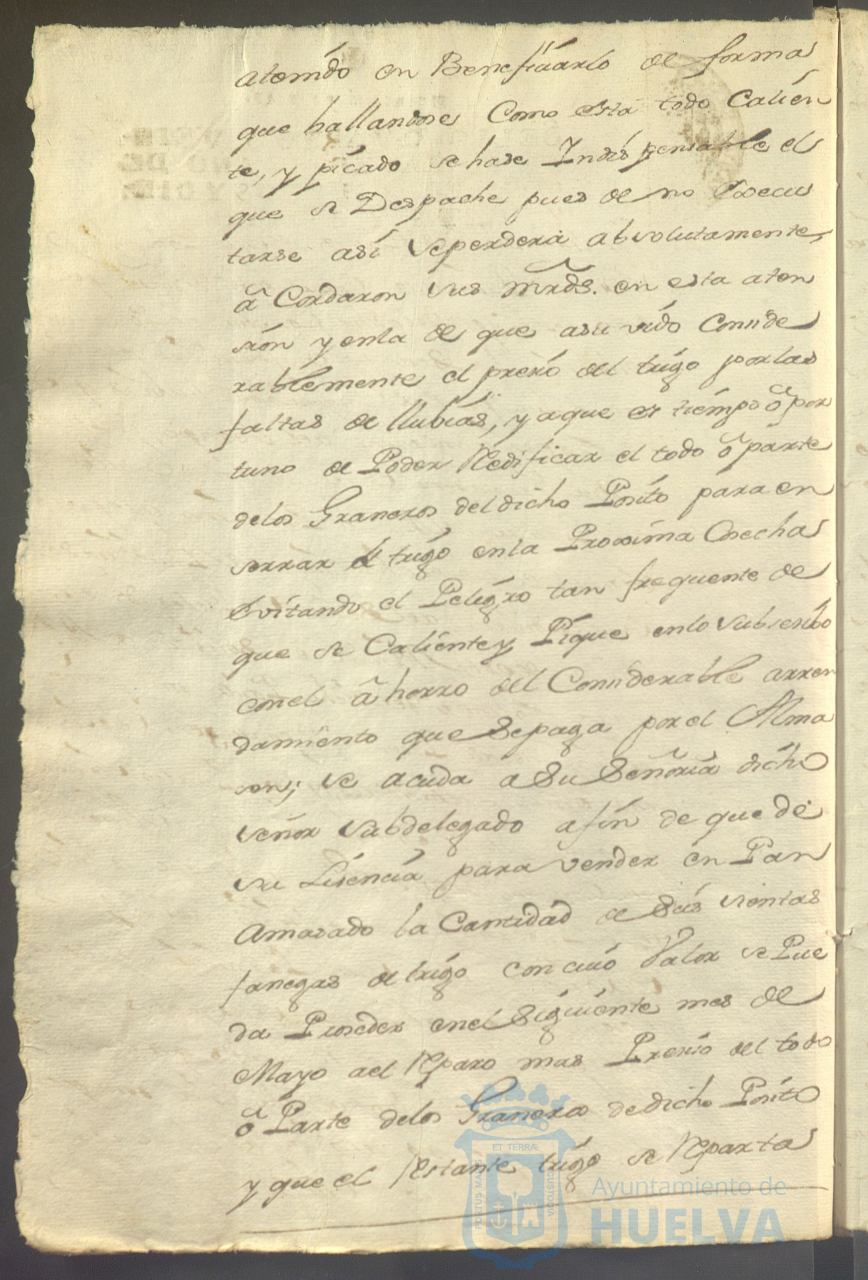 atenído en Benefíciarlo de forma
que hallandose Como esta todo Calien
te, y pícado se hase Indispensable el
que se Despache pues de no Execu
tarse así se perdera absolutamente,
aCordaron sus mrds. en esta aten
sion y enla de que a suvido Conside
rablemente el presio del trígo por las
faltas de llubias, y aque es tiempo opor
tuno de Poder Redificar el todo o parte
delos Graneros del dicho Posito para en
serrar el trigo enla Proxima Cosecha
Evitando el Peligro tan frequente de
que se Caliente y Pique enlo Subsesibo
conel ahorro del Considerable arren
damiento que Sepaga por el Alma
sen; se acuda a Su Señoria dicho
señor Subdelegado afin de que de
su Lisencia para vender en Pan
Amasado la Cantidad de Seis sientas
fanegas de trigo con cuio Valor se Pue
da Proseder enel Siguiente mes de
Mayo ael Reparo mas Presiso del todo
o Parte delos Graneros de dicho Posito
y que el Restante trigo se Reparta
ET TERRÆ
PORTUS MARIS
CUSTODIA
Ayuntamiento de
HUELVA